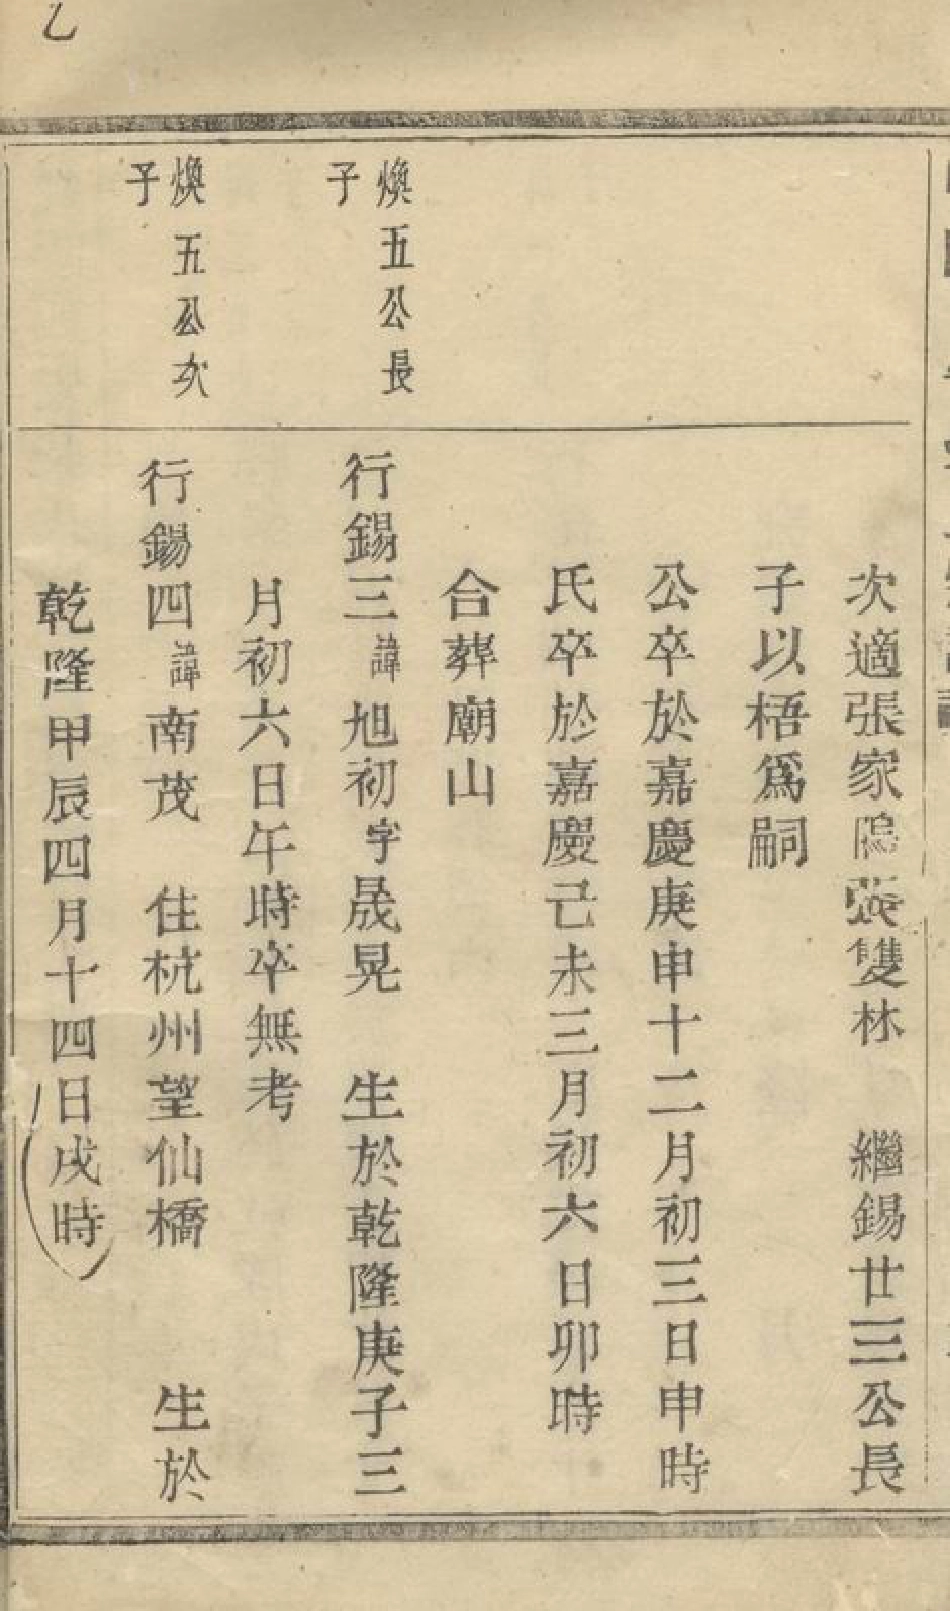 次適張家隖張雙林　繼錫廿三公長
子以梧爲嗣
公卒於嘉慶庚申十二月初三日申時
氏卒於嘉慶己未三月初六日卯時
合葬廟山
煥五公長
子
行錫三諱旭初字晟晃　生於乾隆庚子三
月初六日午時卒無考
煥五公次
子
行錫四諱南茂　住杭州望仙橋　生於
乾隆甲辰四月十四日戌時